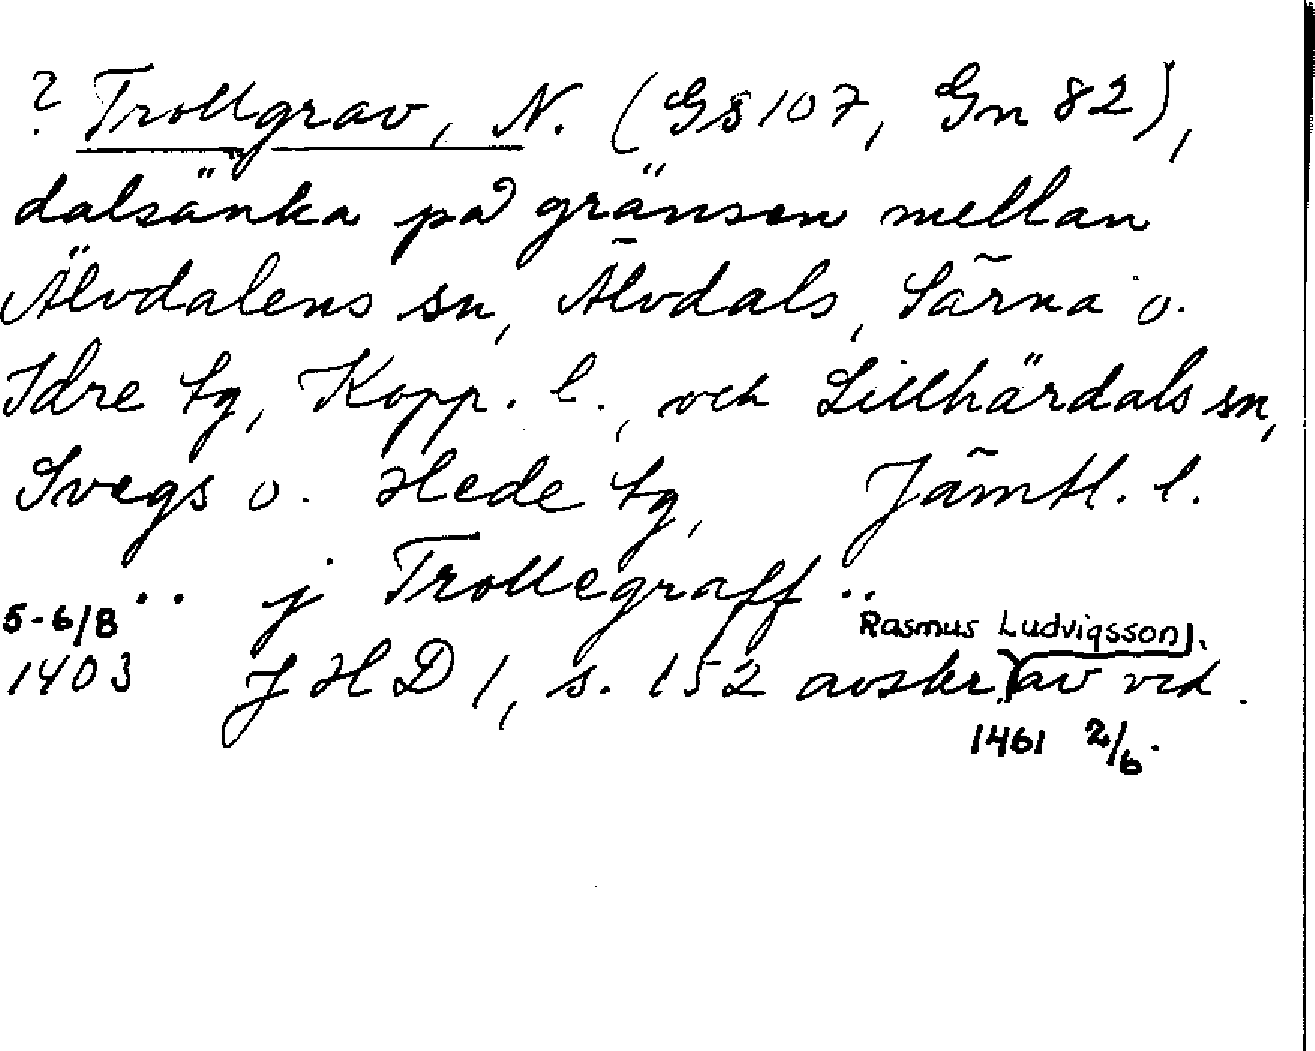 ? Trollgrav, N. (Gs 107, Gn 82),
dalsänka på gränsen mellan
Älvdalens sn, Älvdals, Särna o.
Idre tg, Kopp. l., och Lillhärdals sn,
Svegs o. Hede tg, Jämtl. l.
.. j Trollegraff ..
5-6/8 Rasmus Ludvigsson).
1403 JHD 1, s. 152 avskr. (av vid.
1461 2/6.